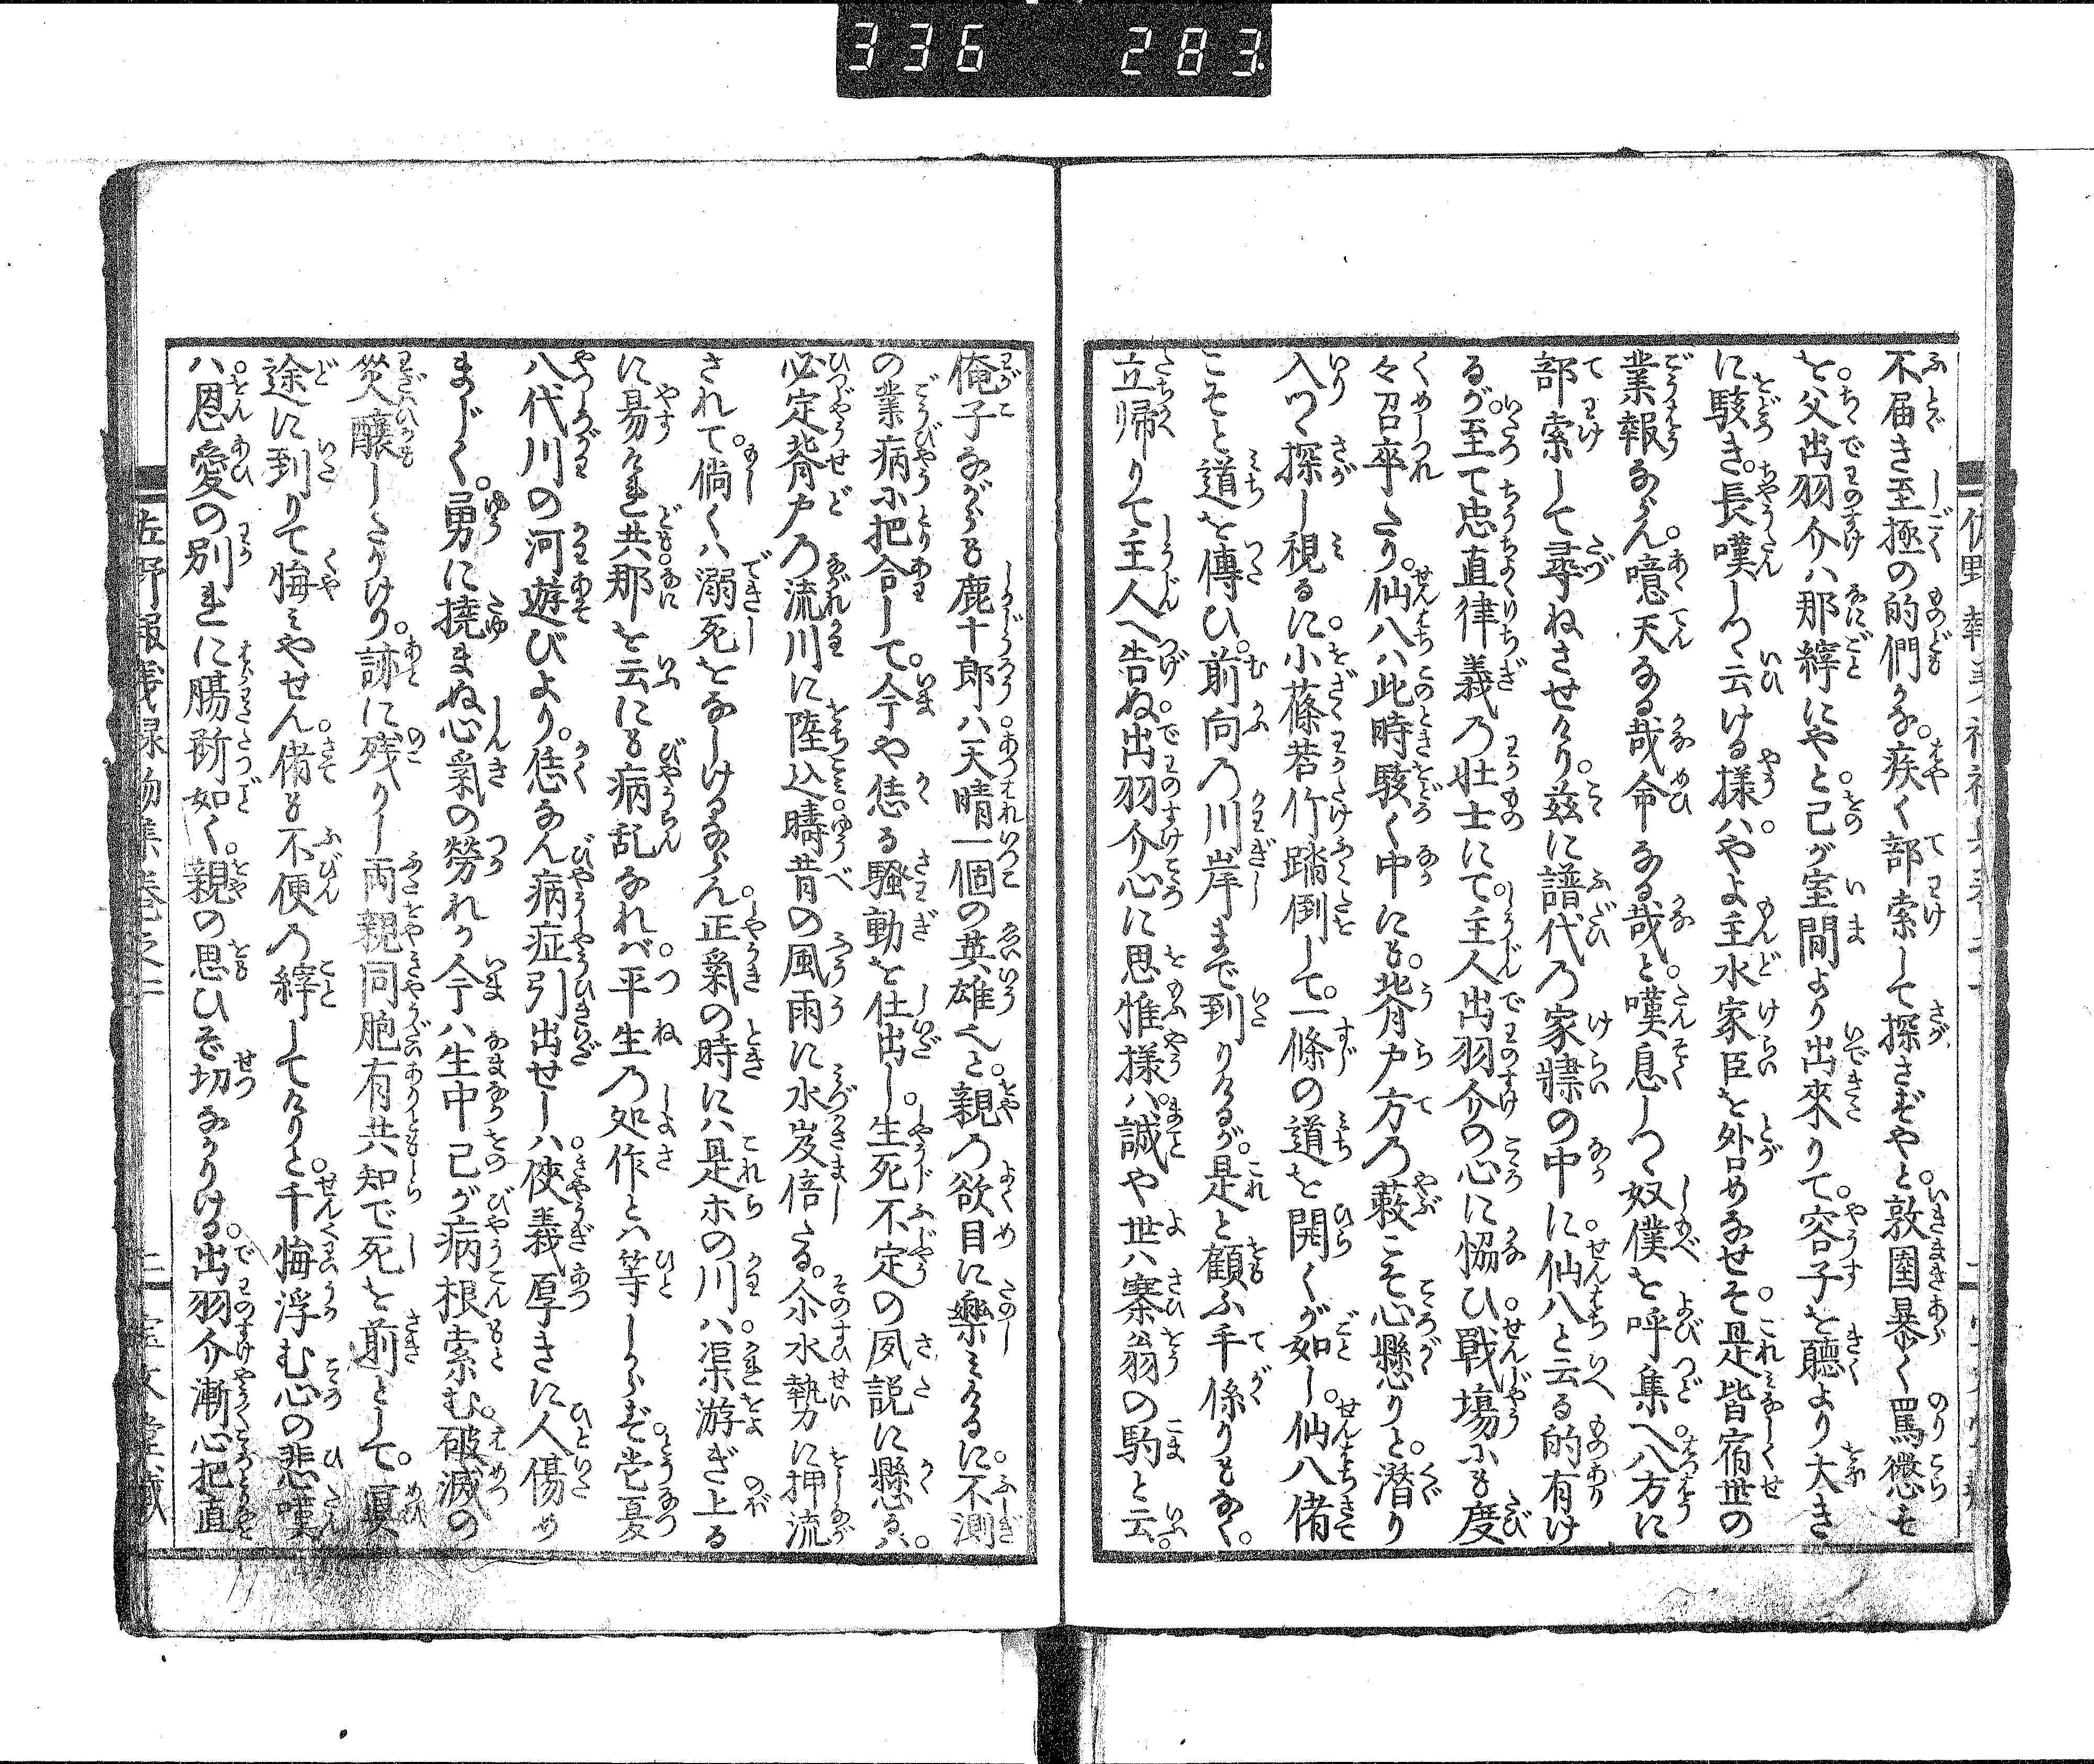 336 283
不届き至極の的們かな。疾く部索して探さぞやと。敦圉暴く罵懲せ
を。父出羽介ハ那縡にやと。己が室間より出來りて。容子を聽より大き
に駭き。長嘆しつゝ云ける様ハ。やよ主水家臣を外口めなせそ。是皆宿世の
業報ならん。噫天なる哉命なる哉と。嘆息しつゝ奴僕を呼集へ。八方に
部索して尋ねさせけり。茲に譜代乃家隷の中に。仙八と云る的有け
るが。至て忠直律義乃壮士にて。主人出羽介の心に恊ひ。戰塲にも度
々召卒たり。仙八ハ此時駭く中にも。背戸方乃藪こそ心懸りと。潜り
入つゝ探し視るに。小篠若竹踏倒して。一條の道を開くが如し。仙八偖
こそと道を傳ひ。前向乃川岸まで到りけるが。是と顧ふ手係りもなく。
立帰りて主人へ告ぬ。出羽介心に思惟様ハ。誠や世ハ塞翁の駒と云。
俺子ながらも鹿十郎ハ。天晴一個の英雄也と。親乃欲目に樂みけるに。不測
の業病に把合して。今や恁る騒動を仕出し。生死不定の夙説に懸るハ。
必定背戸乃流川に陸込。疇昔の風雨に水岌倍たる。余水勢力に押流
されて。倘くハ溺死をなしけるならん。正氣の時にハ是ホの川ハ。渠游ぎ上る
に易けれど共。那を云にも病乱なれバ。平生乃処作とハ等しからず。當夏
八代川の河遊びより。恁なん病症引出せしハ。俠義厚きに人傷め
まじく。勇に撓まぬ心氣の勞れか。今ハ生中己が病根索む。破滅の
災醸したりけり。跡に残りし両親同胞有共知で死を前として。冥
途に到りて悔みやせん。偖も不便乃縡してけりと。千悔浮む心の悲嘆
ハ。恩愛の別れに腸断如く。親の思ひぞ切なりける。出羽介漸心把直
佐野報義録物集巻之二
二
宝文堂藏